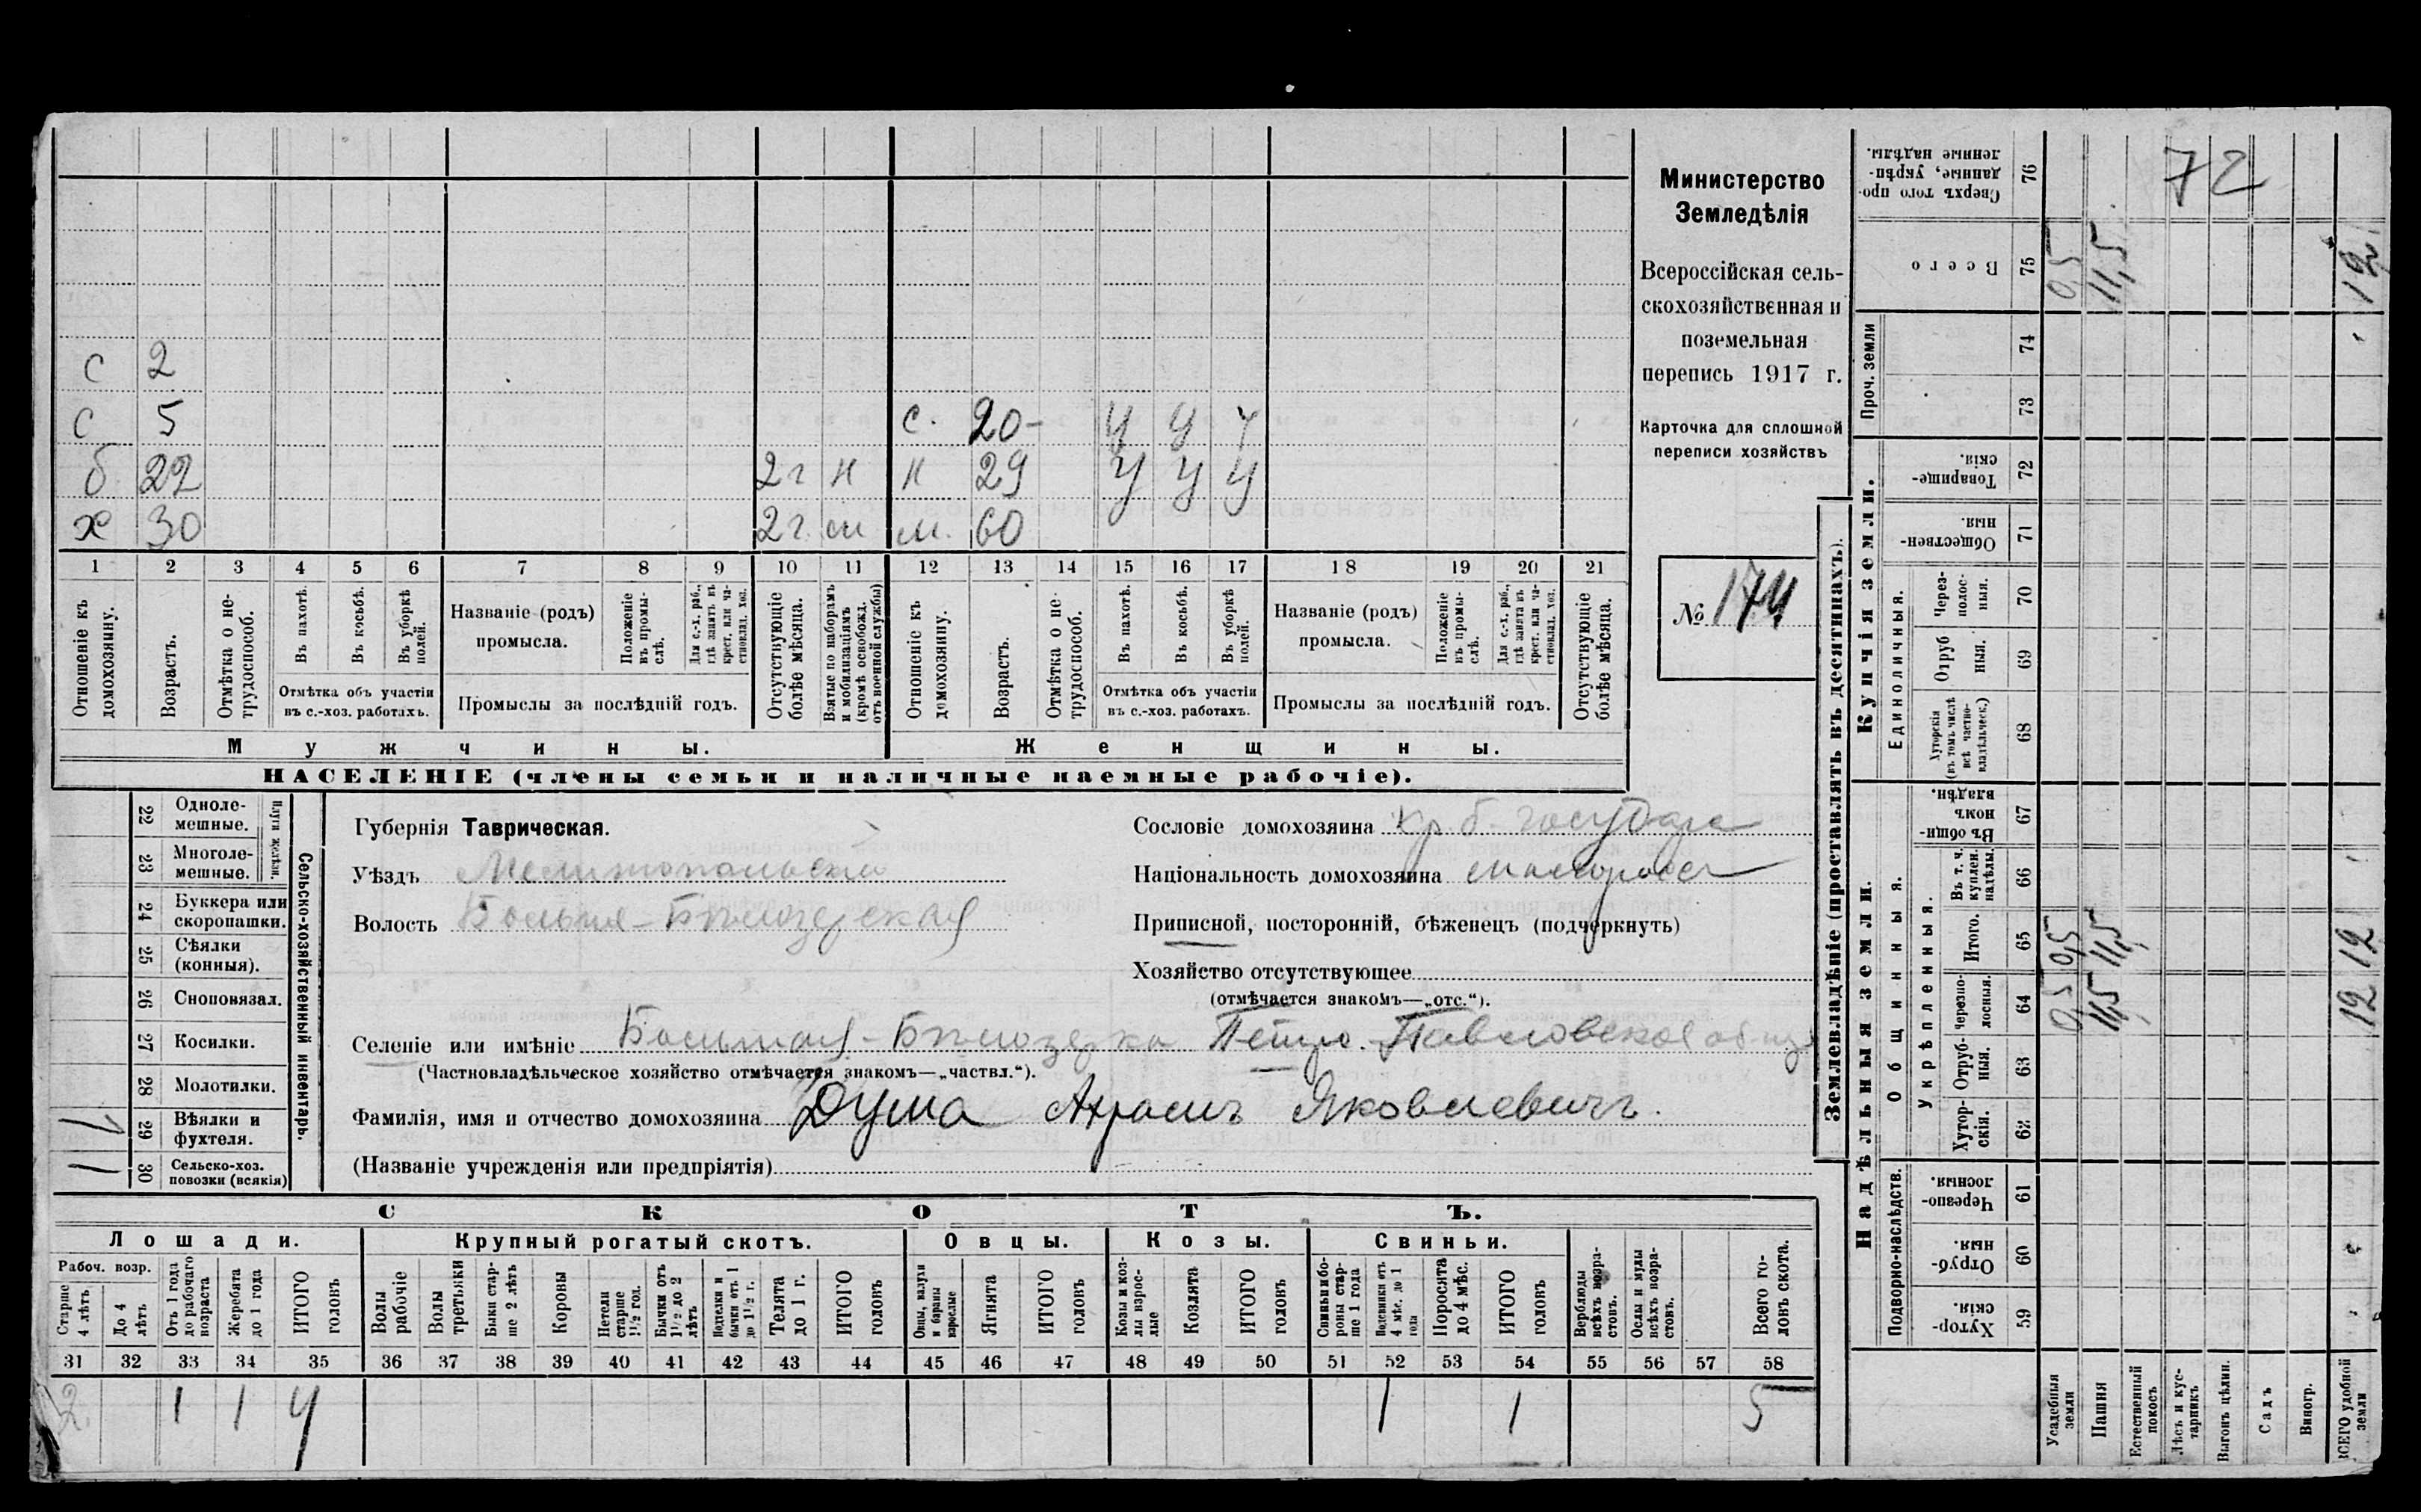 72
Министерство
Земледѣлія
Всероссійская сель-
скохозяйственная и
поземельная
перепись 1917 г.
Карточка для сплошной
переписи хозяйствъ
№ 174
с 2
с 5 с. 20- у у у
б 22 2г н н 29 у у у
х 30 2г м. 60
1 2 3 4 5 6 7 8 9 10 11 12 13 14 15 16 17 18 19 20 21
Отношеніе къ домохозяину.
Возрастъ.
Отмѣтка о не-трудоспособ.
Въ пахотѣ.
Въ косьбѣ.
Въ уборкѣ полей.
Отмѣтка объ участіи
въ с.-хоз. работахъ.
Названіе (родъ)
промысла.
Положеніе въ промы-слѣ.
Для с.-х. раб., гдѣ занятъ въ крест. или ча-стновлад. хоз.
Промыслы за послѣдній годъ.
Отсутствующіе болѣе мѣсяца.
Взятые по наборамъ и мобилизаціямъ (кромѣ освобожд. отъ военной службы)
Отношеніе къ домохозяину.
Возрастъ.
Отмѣтка о не-трудоспособ.
Въ пахотѣ.
Въ косьбѣ.
Въ уборкѣ полей.
Отмѣтка объ участіи
въ с.-хоз. работахъ.
Названіе (родъ)
промысла.
Положеніе въ промы-слѣ.
Для с.-х. раб., гдѣ занята въ крест. или ча-стновлад. хоз.
Промыслы за послѣдній годъ.
Отсутствующіе болѣе мѣсяца.
Мужчины. Женщины.
НАСЕЛЕНІЕ (члены семьи и наличные наемные рабочіе).
Сельско-хозяйственный инвентарь.
Плуги желѣзн.
22 Одноле-мешные.
23 Многоле-мешные.
24 Буккера или скоропашки.
25 Сѣялки (конныя).
26 Сноповязал.
27 Косилки.
28 Молотилки.
1 29 Вѣялки и фухтеля.
1 30 Сельско-хоз. повозки (всякія)
Губернія Таврическая.
Уѣздъ Мелитопольскій
Волость Больше-Бѣлозерская
Сословіе домохозяина кр. б. государ
Національность домохозяина малоросс
Приписной, посторонній, бѣженецъ (подчеркнуть)
Хозяйство отсутствующее
(отмѣчается знакомъ—„отс.“).
Селеніе или имѣніе Большая-Бѣлозерка Петро-Павловское общ
(Частновладѣльческое хозяйство отмѣчается знакомъ—„частвл.“).
Фамилія, имя и отчество домохозяина Дума Яковлевичъ.
(Названіе учрежденія или предпріятія)
СКОТЪ.
Лошади. Крупный рогатый скотъ. Овцы. Козы. Свиньи.
Рабоч. возр.
Старше 4 лѣтъ
До 4 лѣтъ
Отъ 1 года до рабочаго возраста
Жеребята до 1 года
ИТОГО головъ
Волы рабочіе
Волы третьяки
Быки стар-ше 2 лѣтъ
Коровы
Нетели старше 1½ год.
Бычки отъ 1½ до 2 лѣтъ
Подтелки и бычки отъ 1 до 1½ г.
Телята до 1 г.
ИТОГО головъ
Овцы, валухи и бараны взрослые
Ягнята
ИТОГО головъ
Козы и коз-лы взрос-лые
Козлята
ИТОГО головъ
Свиньи и бо-ровы стар-ше 1 года
Подсвинки отъ 4 мѣс. до 1 года
Поросята до 4 мѣс.
ИТОГО головъ
Верблюды всѣхъ возра-стовъ.
Ослы и мулы всѣхъ возра-стовъ.
Всего го-ловъ скота.
31 32 33 34 35 36 37 38 39 40 41 42 43 44 45 46 47 48 49 50 51 52 53 54 55 56 57 58
2 1 1 4 1 1 5
Землевладѣніе (проставлять въ десятинахъ).
Надѣльныя земли.
Купчія земли.
Проч. земли
Подворно-наслѣдств.
Общинныя.
Укрѣпленныя.
Единоличныя.
Хутор-скія. 59
Отруб-ныя. 60
Черезпо-лосныя. 61
Хутор-скія. 62
Отруб-ныя. 63
Черезпо-лосныя. 64 0,5 11,5 12
Итого. 65 0,5 11,5 12
Въ т. ч. куплен. надѣлы. 66
Въ общин-номъ владѣн. 67
Хуторскія (въ томъ числѣ всѣ частно-владѣльческ.) 68
Отруб ныя. 69
Через-полос-ныя. 70
Обществен-ныя. 71
Товарище-скія. 72
73
74
Всего 75 0,5 11,5 12
Сверхъ того про-данные, укрѣп-ленные надѣлы. 76
Усадебныя земли
Пашня
Естественный покосъ
Лѣсъ и кус-тарникъ
Выгонъ цѣлин.
Садъ
Виногр.
ВСЕГО удобной земли